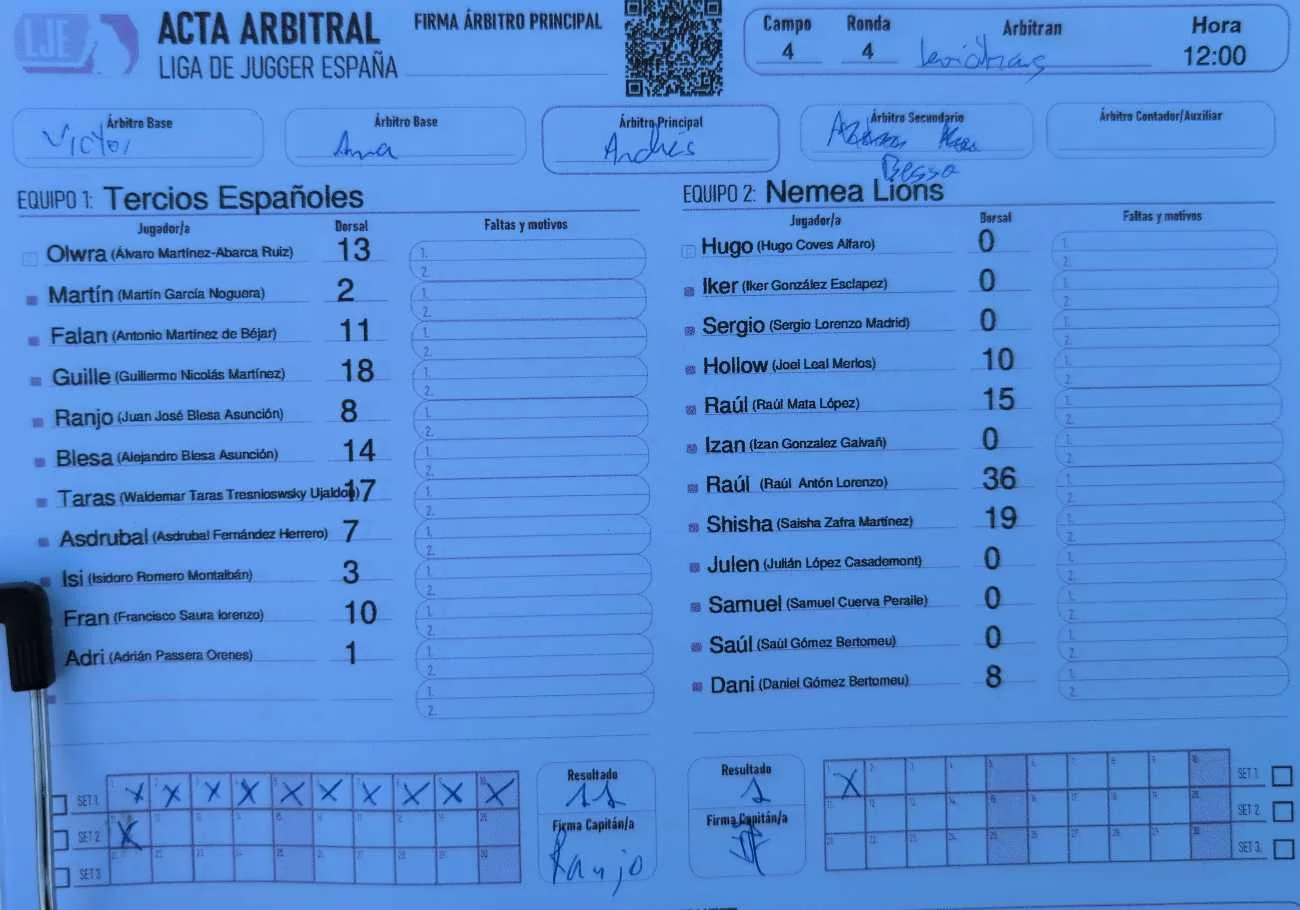 LJE
ACTA ARBITRAL
LIGA DE JUGGER ESPAÑA
FIRMA ÁRBITRO PRINCIPAL
Campo Ronda Arbitran Hora
4 4 12:00
Árbitro Base Árbitro Base Árbitro Principal Árbitro Secundario Árbitro Contador/Auxiliar
Victor Anna Andrés
EQUIPO 1: Tercios Españoles
Jugador/a Dorsal Faltas y motivos
Olwra (Álvaro Martínez-Abarca Ruiz) 13 1. 2.
Martín (Martín García Noguera) 2 1. 2.
Falan (Antonio Martínez de Béjar) 11 1. 2.
Guille (Guillermo Nicolás Martínez) 18 1. 2.
Ranjo (Juan José Blesa Asunción) 8 1. 2.
Blesa (Alejandro Blesa Asunción) 14 1. 2.
Taras (Waldemar Taras Tresniowsky 17 1. 2.
Asdrubal (Asdrubal Fernández Herrero) 7 1. 2.
Isi (Isidoro Romero Montalbán) 3 1. 2.
Fran (Francisco Saura lorenzo) 10 1. 2.
Adri (Adrián Passera Orenes) 1 1. 2.
1. 2.
EQUIPO 2: Nemea Lions
Jugador/a Dorsal Faltas y motivos
Hugo (Hugo Coves Alfaro) 0 1. 2.
Iker (Iker González Esclapez) 0 1. 2.
Sergio (Sergio Lorenzo Madrid) 0 1. 2.
Hollow (Joel Leal Merlos) 10 1. 2.
Raúl (Raúl Mata López) 15 1. 2.
Izan (Izan Gonzalez Galvañ) 0 1. 2.
Raúl (Raúl Antón Lorenzo) 36 1. 2.
Shisha (Saisha Zafra Martínez) 19 1. 2.
Julen (Julián López Casademont) 0 1. 2.
Samuel (Samuel Cuerva Peraile) 0 1. 2.
Saúl (Saúl Gómez Bertomeu) 0 1. 2.
Dani (Daniel Gómez Bertomeu) 8 1. 2.
SET 1 X X X X X X X X X X
SET 2 X
SET 3
Resultado
11
Firma Capitán/a
Ranjo
Resultado
1
Firma Capitán/a
X SET 1
SET 2
SET 3